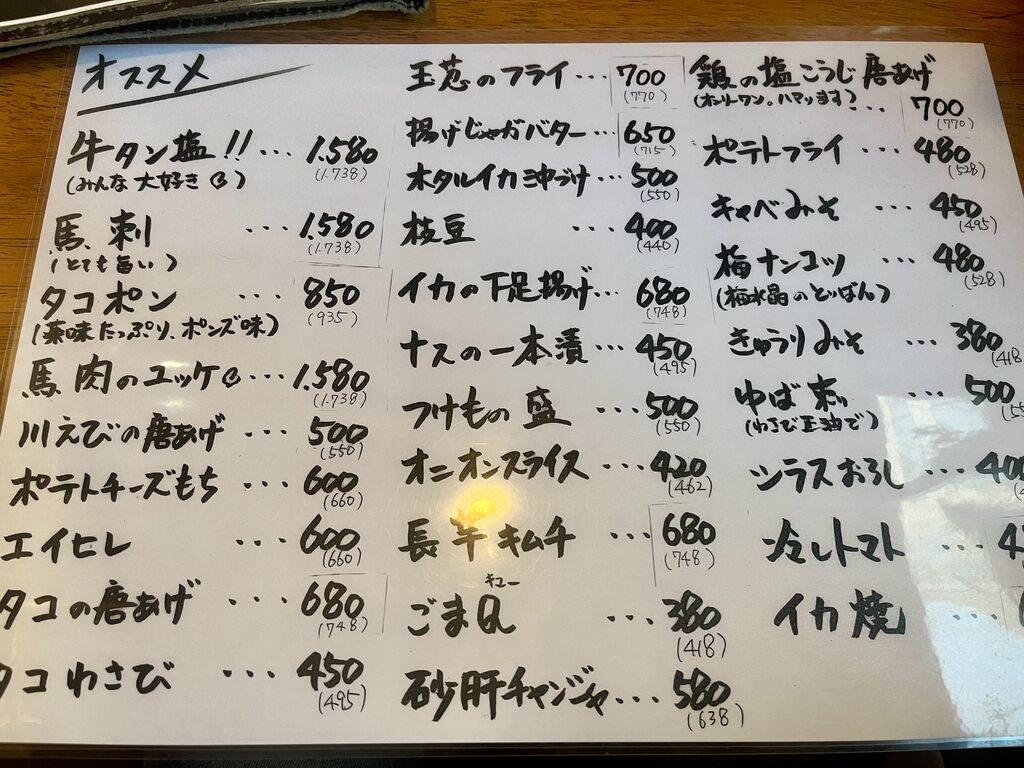 オススメ
牛タン塩!! ... 1.580
(みんな大好き) (1.738)
馬刺 ... 1.580
(とても旨い) (1.738)
タコポン ... 850
(薬味たっぷり、ポンズ味) (935)
馬肉のユッケ ... 1.580
(1.738)
川えびの唐あげ 500
(550)
ポテトチーズもち 600
(660)
エイヒレ ... 600
(660)
タコの唐あげ ... 680
(748)
タコわさび ... 450
(495)
玉葱のフライ ... 700
(770)
揚げじゃがバター ... 650
(715)
ホタルイカ沖づけ ... 500
(550)
枝豆 ... 400
(440)
イカの下足揚げ ... 680
(748)
ナスの一本漬 ... 450
(495)
つけもの盛 ... 500
(550)
オニオンスライス ... 420
(462)
長芋キムチ ... 680
(748)
キュー
ごまQ ... 380
(418)
砂肝チャンジャ ... 580
(638)
鶏の塩こうじ唐あげ
(オンリーワン。ハマります) ... 700
(770)
ポテトフライ ... 480
(528)
キャベみそ ... 450
(495)
梅ナンコツ ... 480
(梅水晶のとりばん) (528)
きゅうりみそ ... 380
(418
ゆば刺 ... 500
(わさび正油で)
シラスおろし ... 400
冷しトマト ... 4
イカ焼 ...